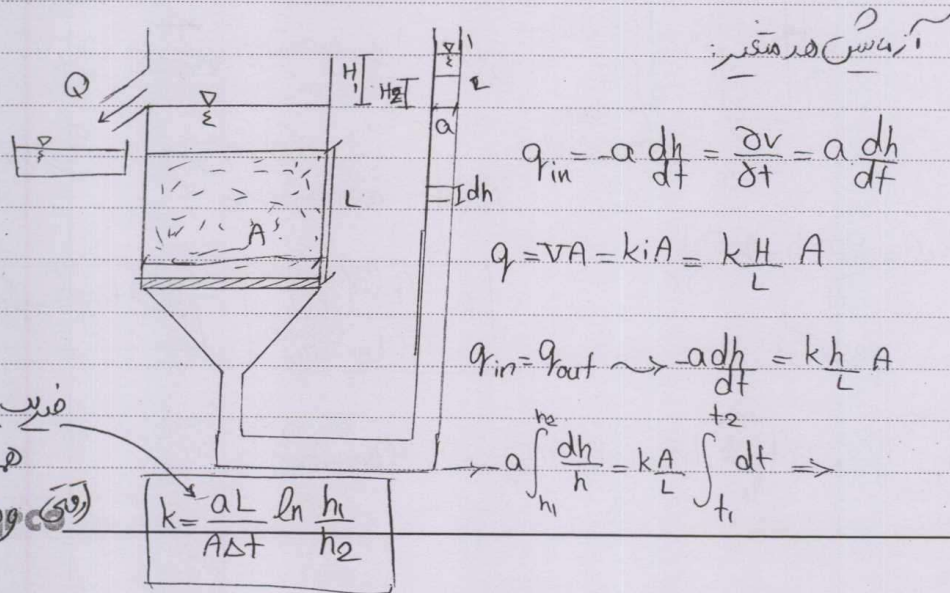 آزمایش هد متغیر:
Q
H₁
H₂
1
2
a
dh
L
A
q_in = -a dh/dt = ∂v/∂t = a dh/dt
q = VA = kiA = k H/L A
q_in = q_out ⤳ -a dh/dt = k h/L A
→ -a ∫_{h₁}^{h₂} dh/h = k A/L ∫_{t₁}^{t₂} dt =>
ضریب
k = aL/AΔt ln h₁/h₂